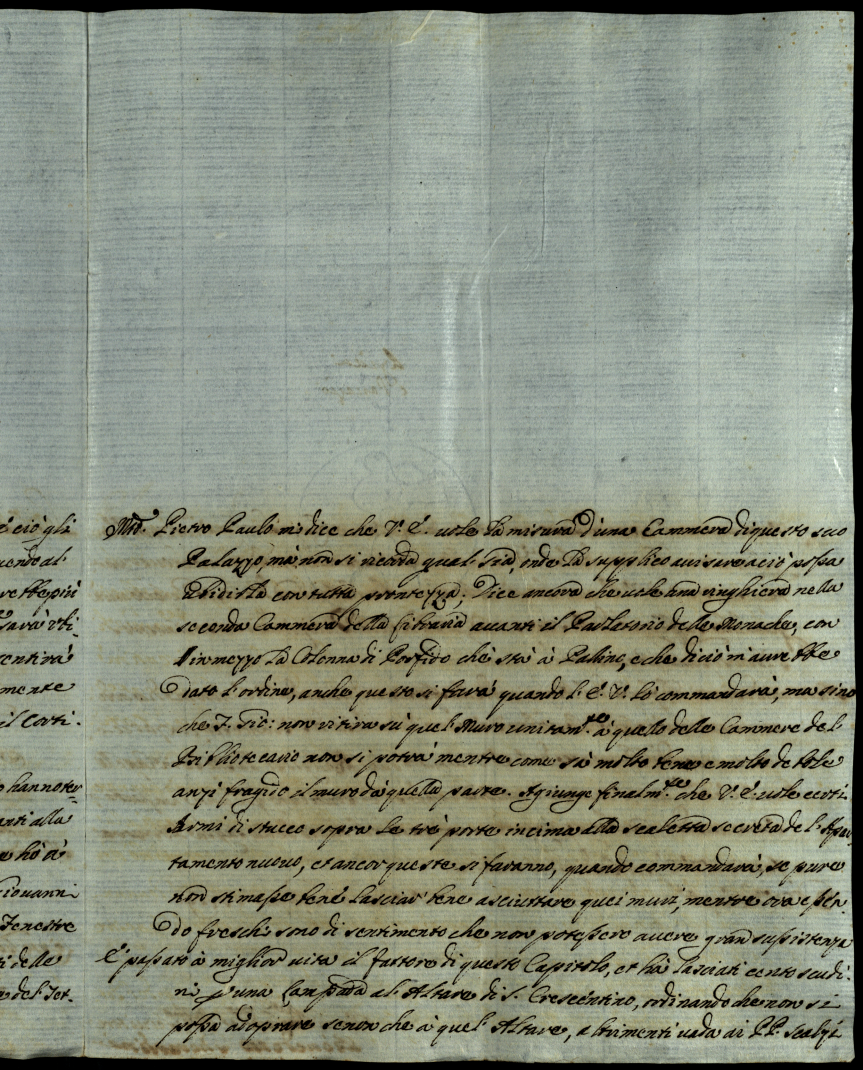 è ciò gli
uendo al
rebbe più
Sarà vti-
sentirà
mente
il Corti-
o hanno ter
anti alla
e hò à
Giovanni
Fenestre
ti delle
e del Set-
Mrõ. Pietro Paulo mi dice che V. E. uole la misura d'una Cammera di questo suo
Palazzo, mà non si ricorda qual sia, onde la supplico auisare acciò possa
Ubidirla con tutta prontezza; Dice ancora che uole una ringhiera nella
seconda Cammera della Libraria auanti il Parlatorio delle Monache, con
in mezzo la Colonna di Porfido che stà à Palino, e che di ciò m'aurebbe
dato l'ordine, anche questo si farà quando l'E. V. lo commandarà, ma sino
che F. Gio: non ritira sù quel Muro unitam.te à quello delle Cammere del
Bibliotecario non si potrà mentre come sà molto bene e molto debole
anzi fragido il muro dà quella parte. Agiunge finalm.te che V. E. uole certi
Armi di stucco sopra le trè porte in cima alla scaletta secreta del Apar-
tamento nuouo, et ancor queste si faranno, quando commandarà, se pure
non stimasse bene lasciar bene asciuttare quei muri, mentre ora essen-
do freschi sono di sentimento che non potessero auere gran susistenza
È passato à miglior uita il fattore di questo Capitolo, et hà lasciati cento scudi-
ni p una Lampada al Altare di S. Crescentino, ordinando che non si
possa adoprare se non che à quel Altare, altrimenti uada ai PP. Scalzi